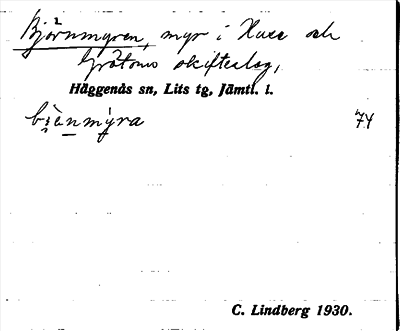 Björnmyren, myr i Huse och
Gråtomo skifteslag,
Häggenås sn, Lits tg, Jämtl. l.
bi̯ènmýra 74
C. Lindberg 1930.